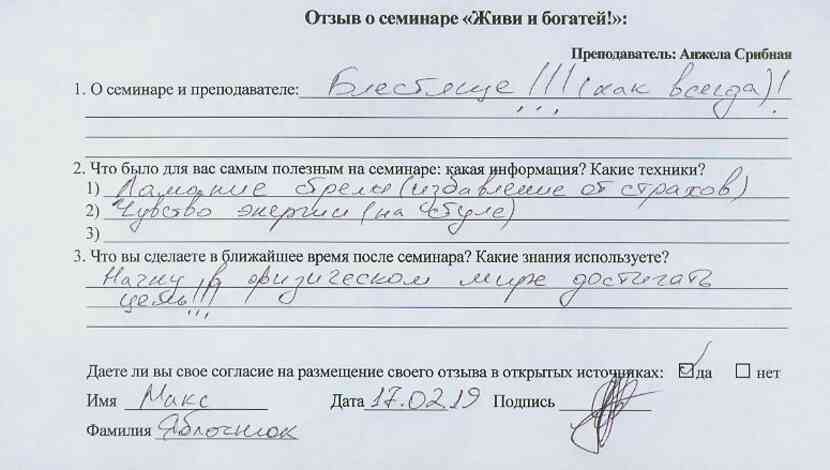 Отзыв о семинаре «Живи и богатей!»:
Преподаватель: Анжела Срибная
1. О семинаре и преподавателе: Блестяще!!! (как всегда)!
2. Что было для вас самым полезным на семинаре: какая информация? Какие техники?
1) Ламание стрелы (избавление от страхов)
2) Чувство энергии (на стуле)
3)
3. Что вы сделаете в ближайшее время после семинара? Какие знания используете?
Начну в физическом мире достигать
цель!!!
Даете ли вы свое согласие на размещение своего отзыва в открытых источниках: да нет
Имя Макс Дата 17.02.19 Подпись
Фамилия Яблочнюк